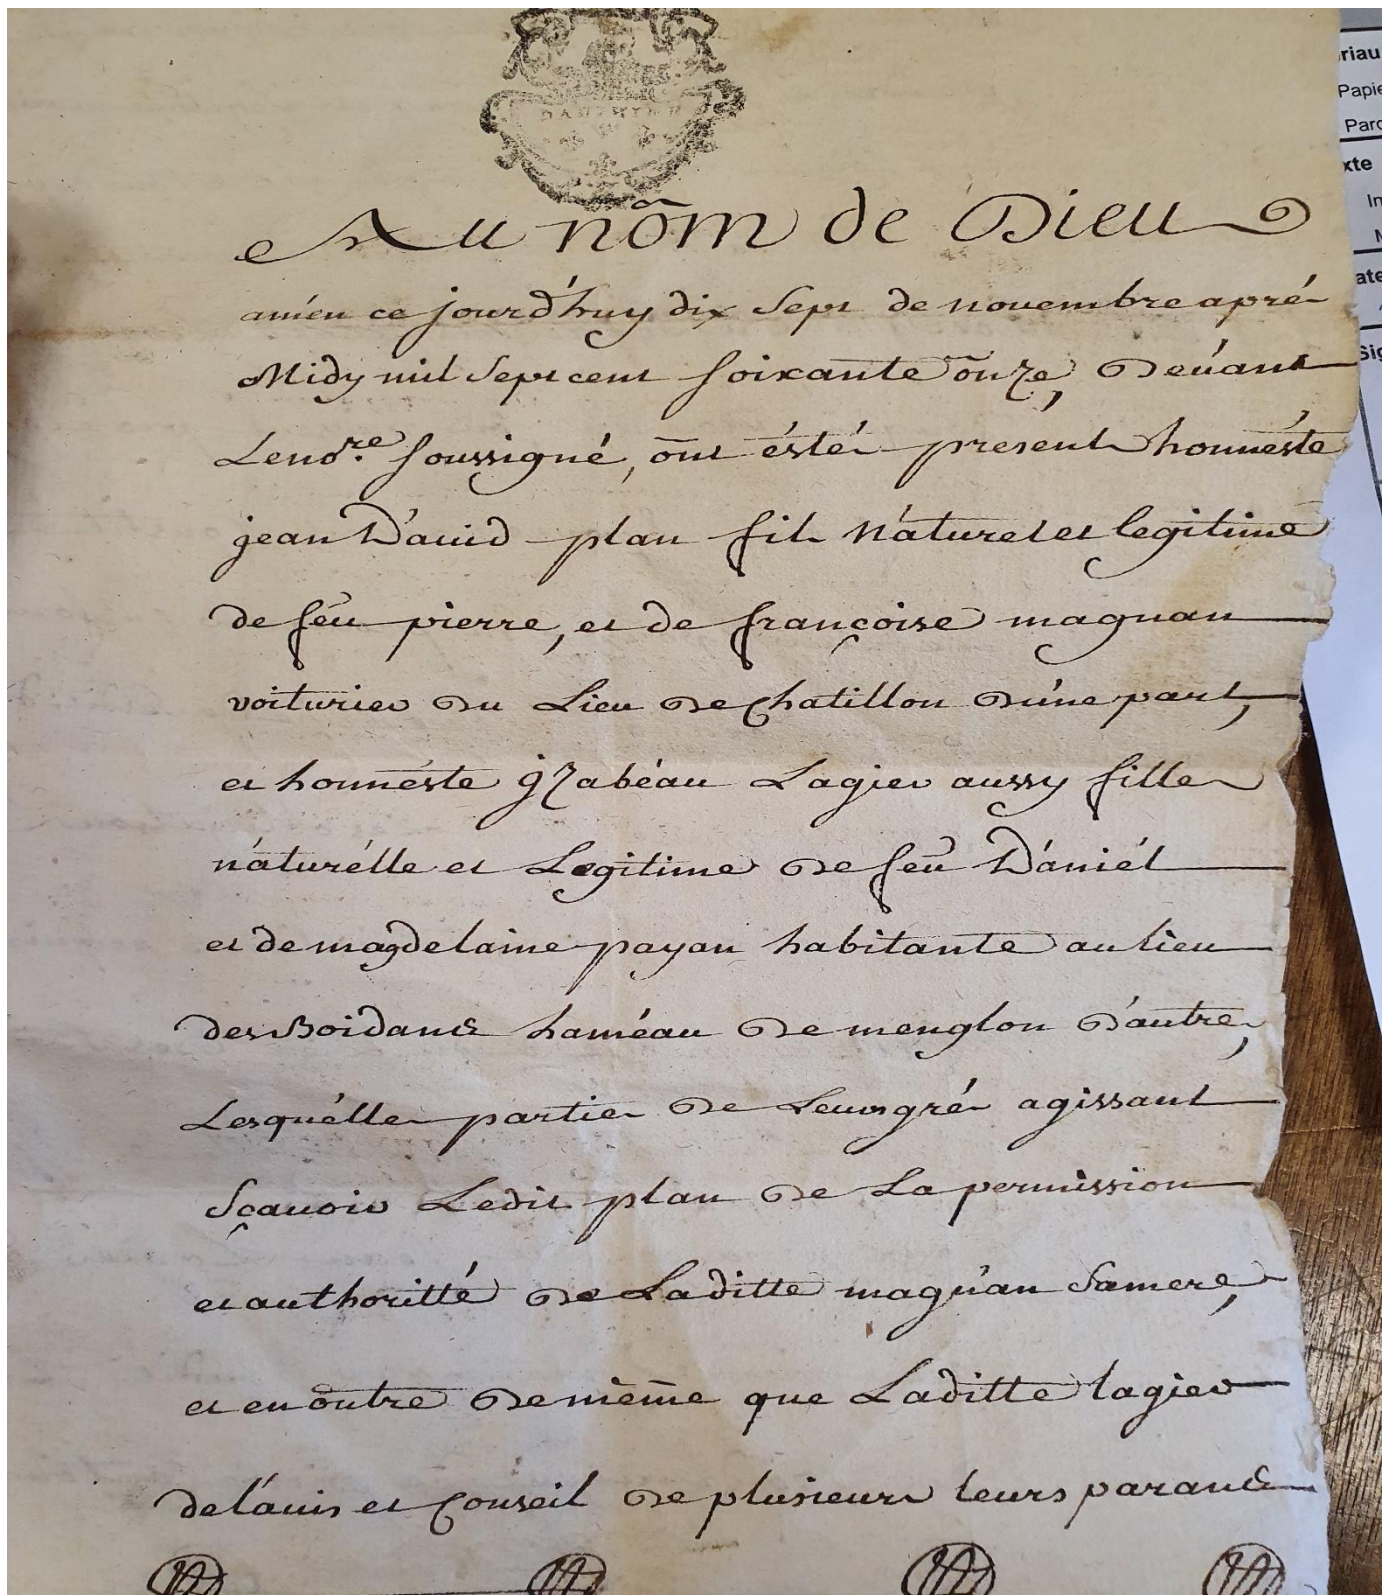 DAUPHINE
Au nõm de Dieu
amén ce jourd'huy dix sept de novembre aprés
Midy mil sept cent soixante õnze, devant
Le no.re soussigné, õnt ésté present honnéste
jean David plan fils náturel et legitime
de feu pierre, et de françoise magnan
voiturier du Lieu de Chatillon d'úne part,
et honnéste yzabéau Lagier aussy fille
náturélle et Legitime de feu Daniél
et de magdelaine payan habitante au lieu
des Boidans haméau de menglon d'autre,
Lesquélles parties de Leurs gré agissant
sçavoir Ledit plan de La permission
et authoritté de Laditte magnan sa mere,
et en oütre de méme que Laditte lagier
de l'avis et Conseil de plusieurs leurs parans
riau
Papie
Parc
xte
In
ate
Sig